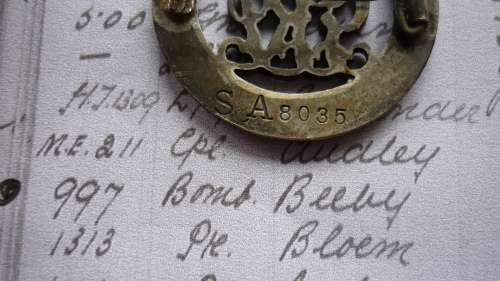 5.00
H.T.1209
SA8035
M.E.211 Cpl. Audley
997 Bomb. Beeby
1313 Pte. Bloem